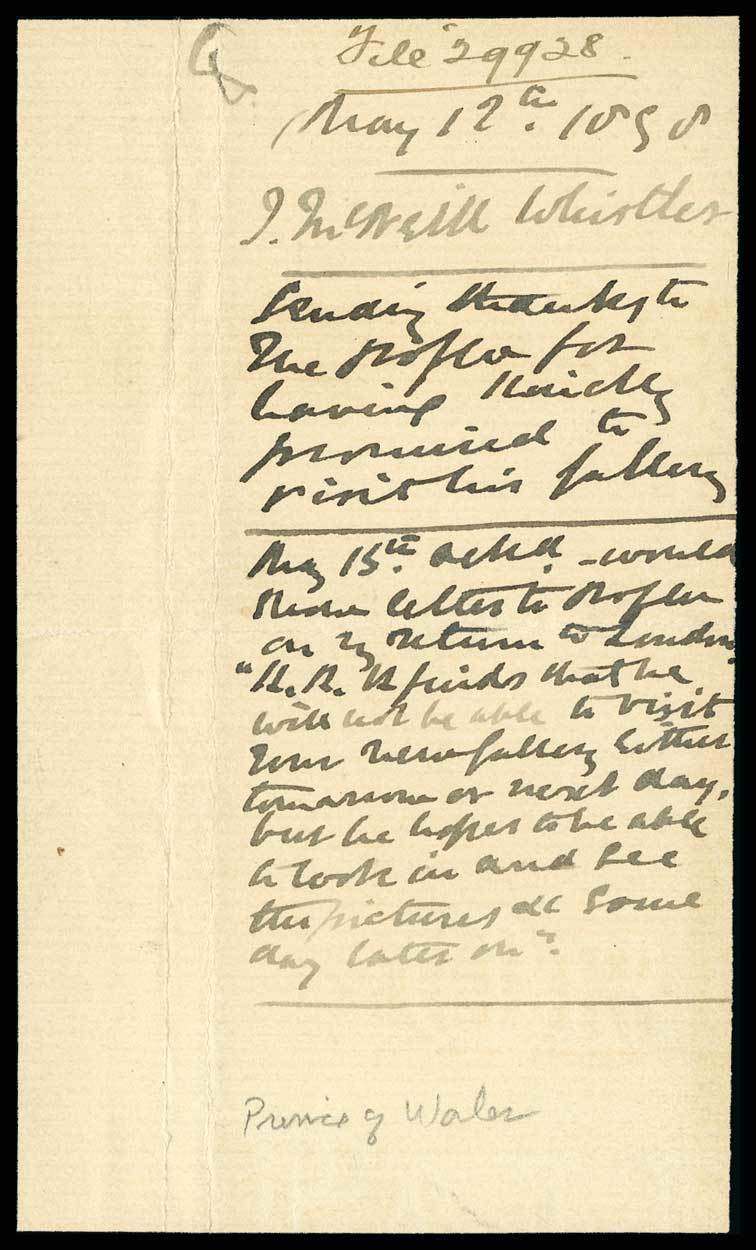 File 29928.
May 12th. 1898
J. McNeill Whistler
Sending thanks to
The Prof for
having kindly
promised to
visit his gallery
May 15th. Ackd. - would
show letter to
on my return to London
"H.R.H finds that he
will not be able to visit
your new gallery either
tomorrow or next day,
but he hopes to be able
to look in and see
the pictures at some
day later on".
Prince of Wales